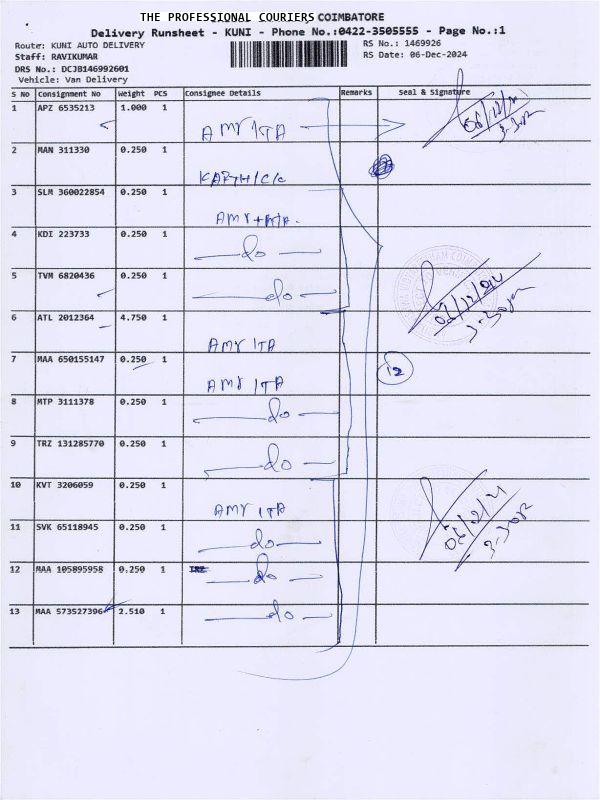 THE PROFESSIONAL COURIERS COIMBATORE
Delivery Runsheet - KUNI - Phone No.:0422-3505555 - Page No.:1
Route: KUNI AUTO DELIVERY
RS No.: 1469926
Staff: RAVIKUMAR
RS Date: 06-Dec-2024
DRS No.: DCJB146992601
Vehicle: Van Delivery
S No Consignment No Weight PCS Consignee Details Remarks Seal & Signature
1 APZ 6535213 1.000 1
AMRITA
2 MAN 311330 0.250 1
3 SLM 360022854 0.250 1
4 KDI 223733 0.250 1
do
5 TVM 6820436 0.250 1
do
6 ATL 2012364 4.750 1
AMRITA
7 MAA 650155147 0.250 1
AMRITA 12
8 MTP 3111378 0.250 1
do
9 TRZ 131285770 0.250 1
do
10 KVT 3206059 0.250 1
AMRITA
11 SVK 65118945 0.250 1
do
12 MAA 105895958 0.250 1
do
13 MAA 573527396 2.510 1
do